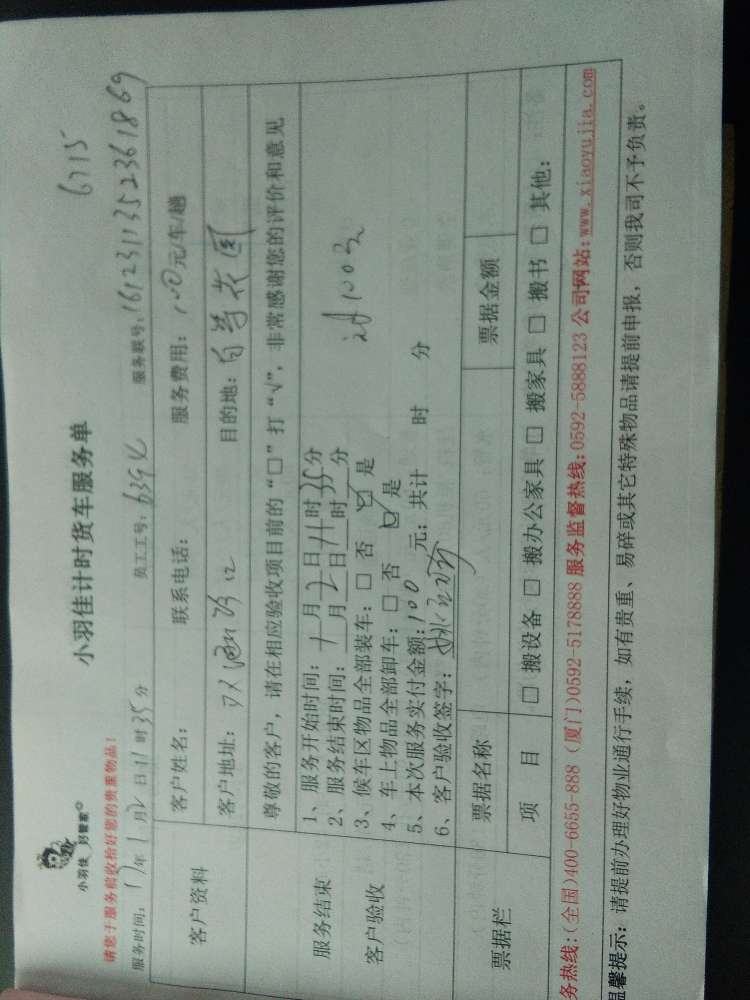 小羽佳 好管家
6715
小羽佳计时货车服务单
请您于服务前收拾好您的贵重物品！
服务时间：17年1月2日11时35分 员工工号：6394 服务联号：1612311352361869
客户资料
客户姓名： 联系电话： 服务费用：100元/车/趟
客户地址： 路口 目的地： 花园
尊敬的客户，请在相应验收项目前的“□”打“√”，非常感谢您的评价和意见
服务结束
客户验收
1、服务开始时间：1月2日11时35分
2、服务结束时间：__月__日__时__分
3、候车区物品全部装车：□ 否 ☑ 是
4、车上物品全部卸车：□ 否 ☑ 是
5、本次服务实付金额：100 元；共计 时 分
6、客户验收签字：
100元
票据栏
票据名称 票据金额
项 目 □ 搬设备 □ 搬办公家具 □ 搬家具 □ 搬书 □ 其他：
务热线：(全国)400-6655-888 (厦门)0592-5178888 服务监督热线：0592-5888123 公司网站：www.xiaoyujia.com
温馨提示：请提前办理好物业通行手续，如有贵重、易碎或其它特殊物品请提前申报，否则我司不予负责。